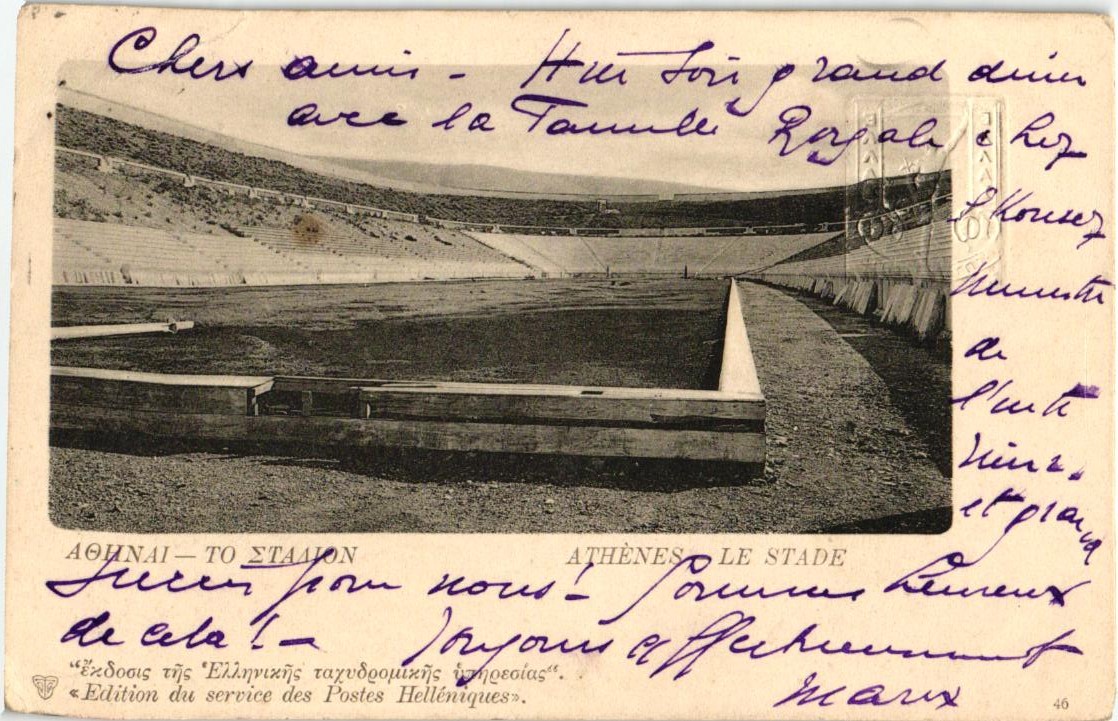 Chers amis - Hier soir grand diner
avec la Famille Royale chez
Skouses
Ministre
de
l'inté
rieur
et grand
succès pour nous! Sommes heureux
de cela! - Toujours affectueusement
ΑΘΗΝΑΙ — ΤΟ ΣΤΑΔΙΟΝ
ATHÈNES LE STADE
“ἔκδοσις τῆς Ἑλληνικῆς ταχυδρομικῆς ὑπηρεσίας”.
«Edition du service des Postes Helléniques».
46
ΕΛΛΑΣ
ΕΛΛΑΣ